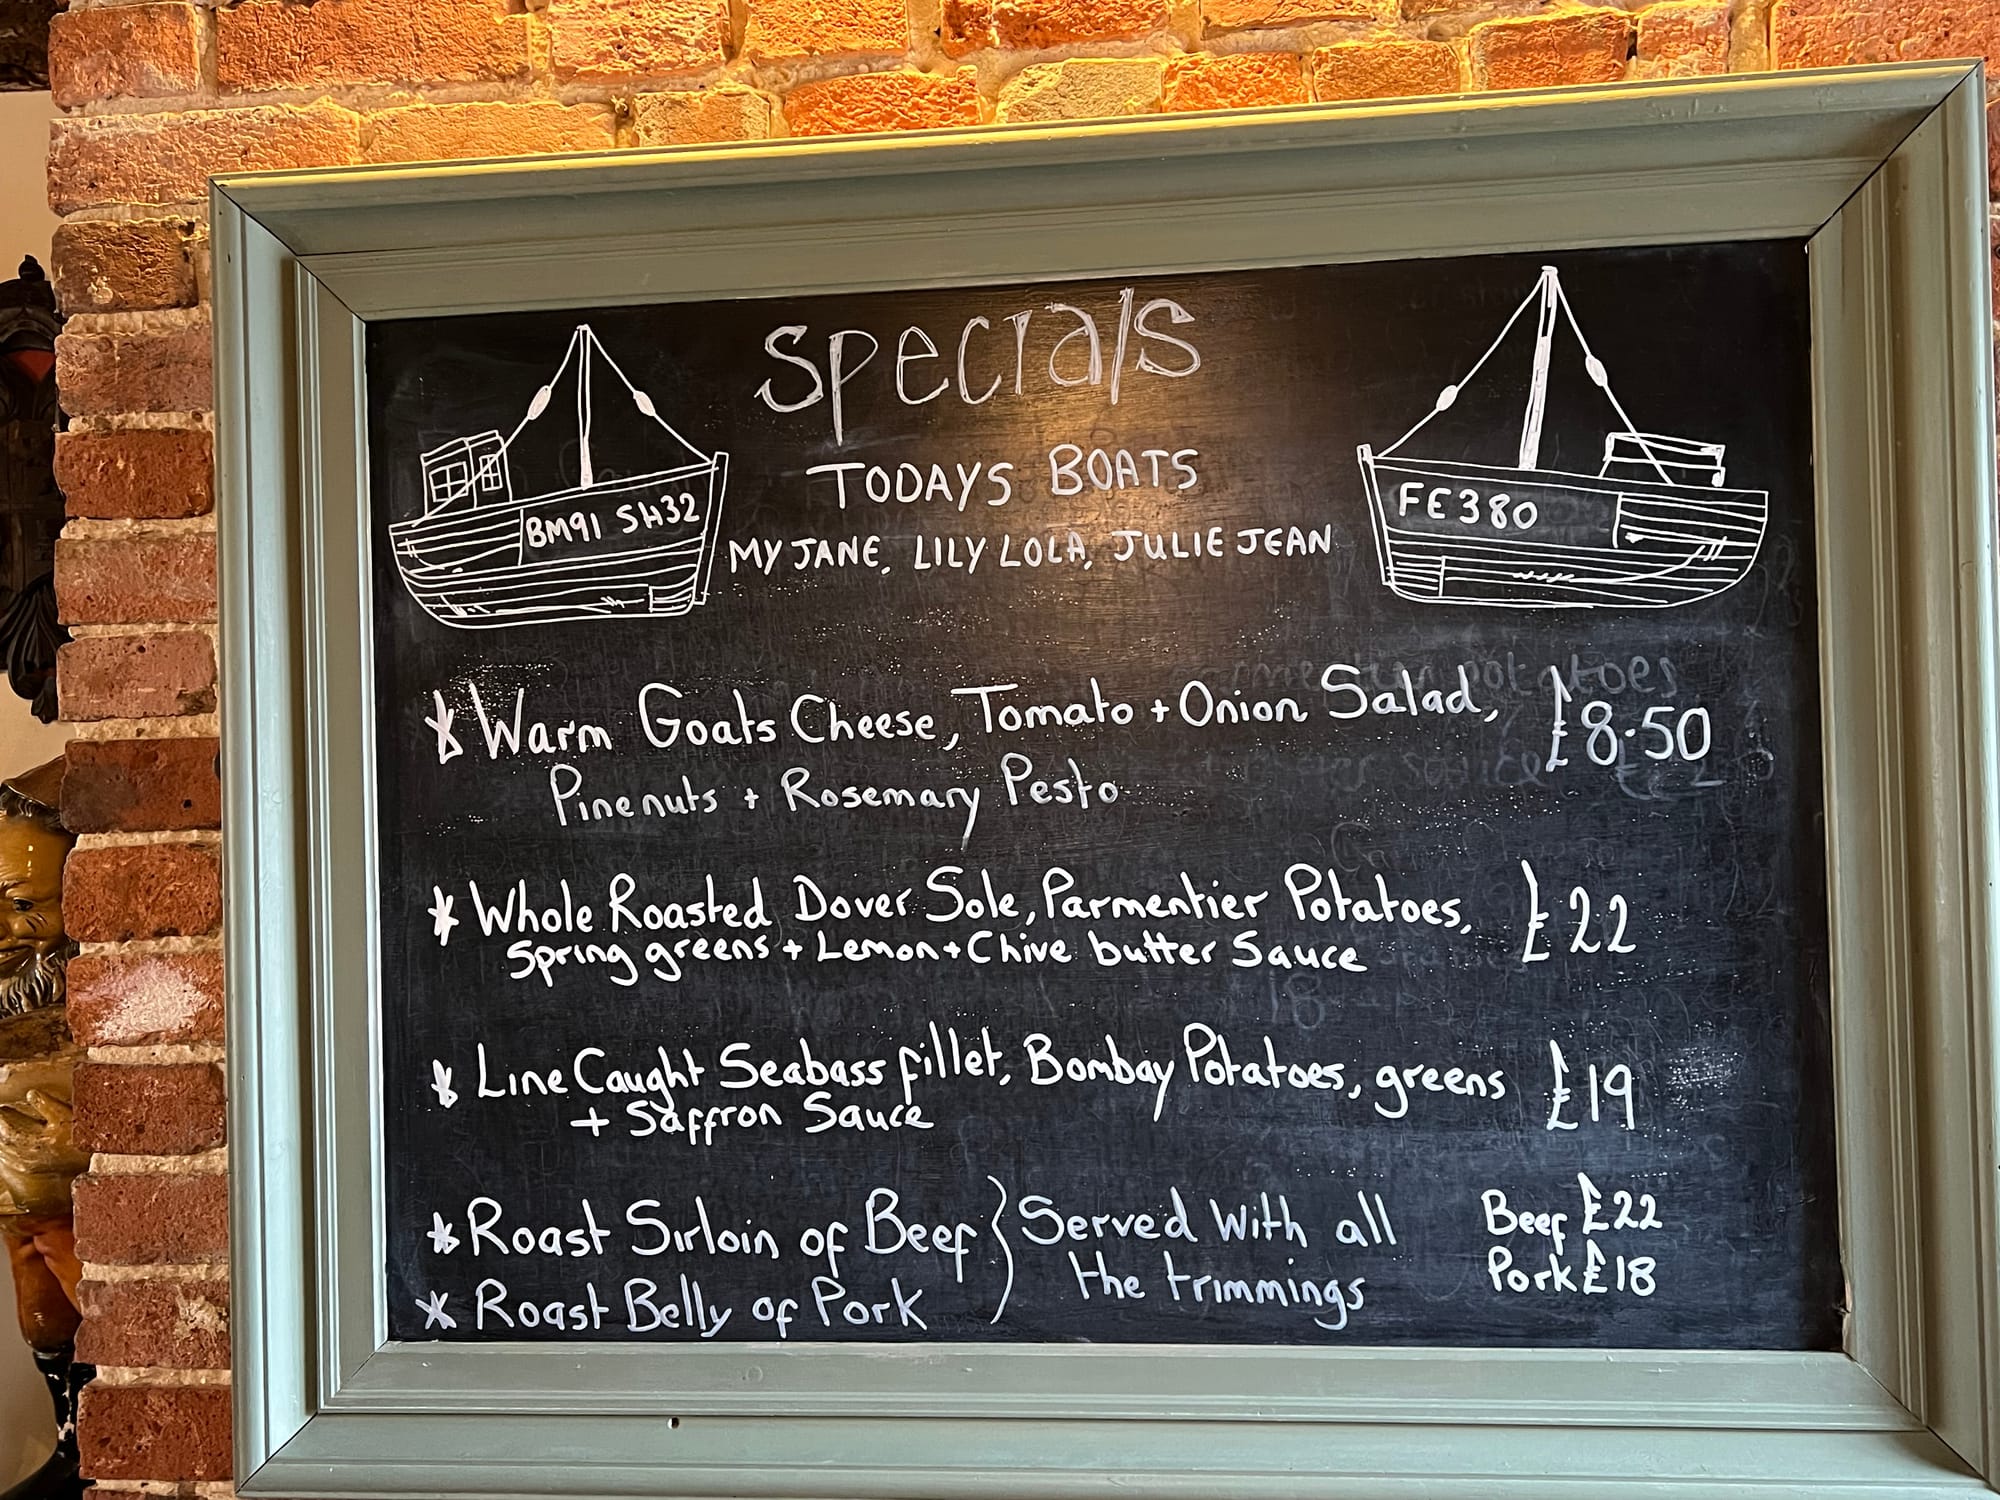 Specials
TODAYS BOATS
MY JANE, LILY LOLA, JULIE JEAN
BM91 SH32
FE380
* Warm Goats Cheese, Tomato + Onion Salad, £8.50
Pinenuts + Rosemary Pesto
* Whole Roasted Dover Sole, Parmentier Potatoes, £22
Spring greens + Lemon + Chive butter Sauce
* Line Caught Seabass fillet, Bombay Potatoes, greens £19
+ Saffron Sauce
* Roast Sirloin of Beef } Served with all Beef £22
* Roast Belly of Pork the trimmings Pork £18